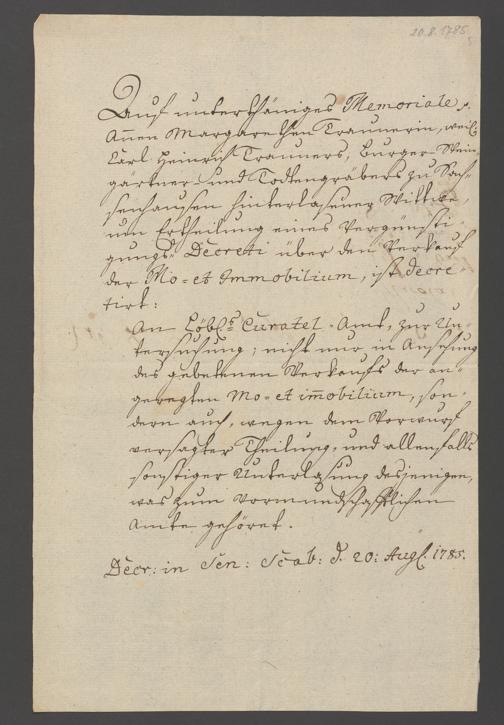 20.8.1785.
Auf unterthäniges Memoriale
Annen Margarethen Traunerin, weil.
Carl Heinrich Trauners, Burger Wein-
gärtner und Todtengräbers zu Sach-
senhausen hinterlasener Wittibe,
um Ertheilung eines Vergünsti-
gungs Decreti über den Verkauf
der Mo- et Immobilium, ist decre-
tirt:
An Löbl. Curatel-Amt, zur Un-
tersuchung; nicht nur in Ansehung
des gebetenen Verkaufs der an-
geregten Mo- et im̅obilium, son-
dern auch, wegen dem Vorwurf
versagter Theilung, und allenfalls
sonstiger Unterlasung desjenigen,
was zum Vormundschafftlichen
Amte gehöret.
Decr: in Sen: Scab: d. 20: Augl. 1785.